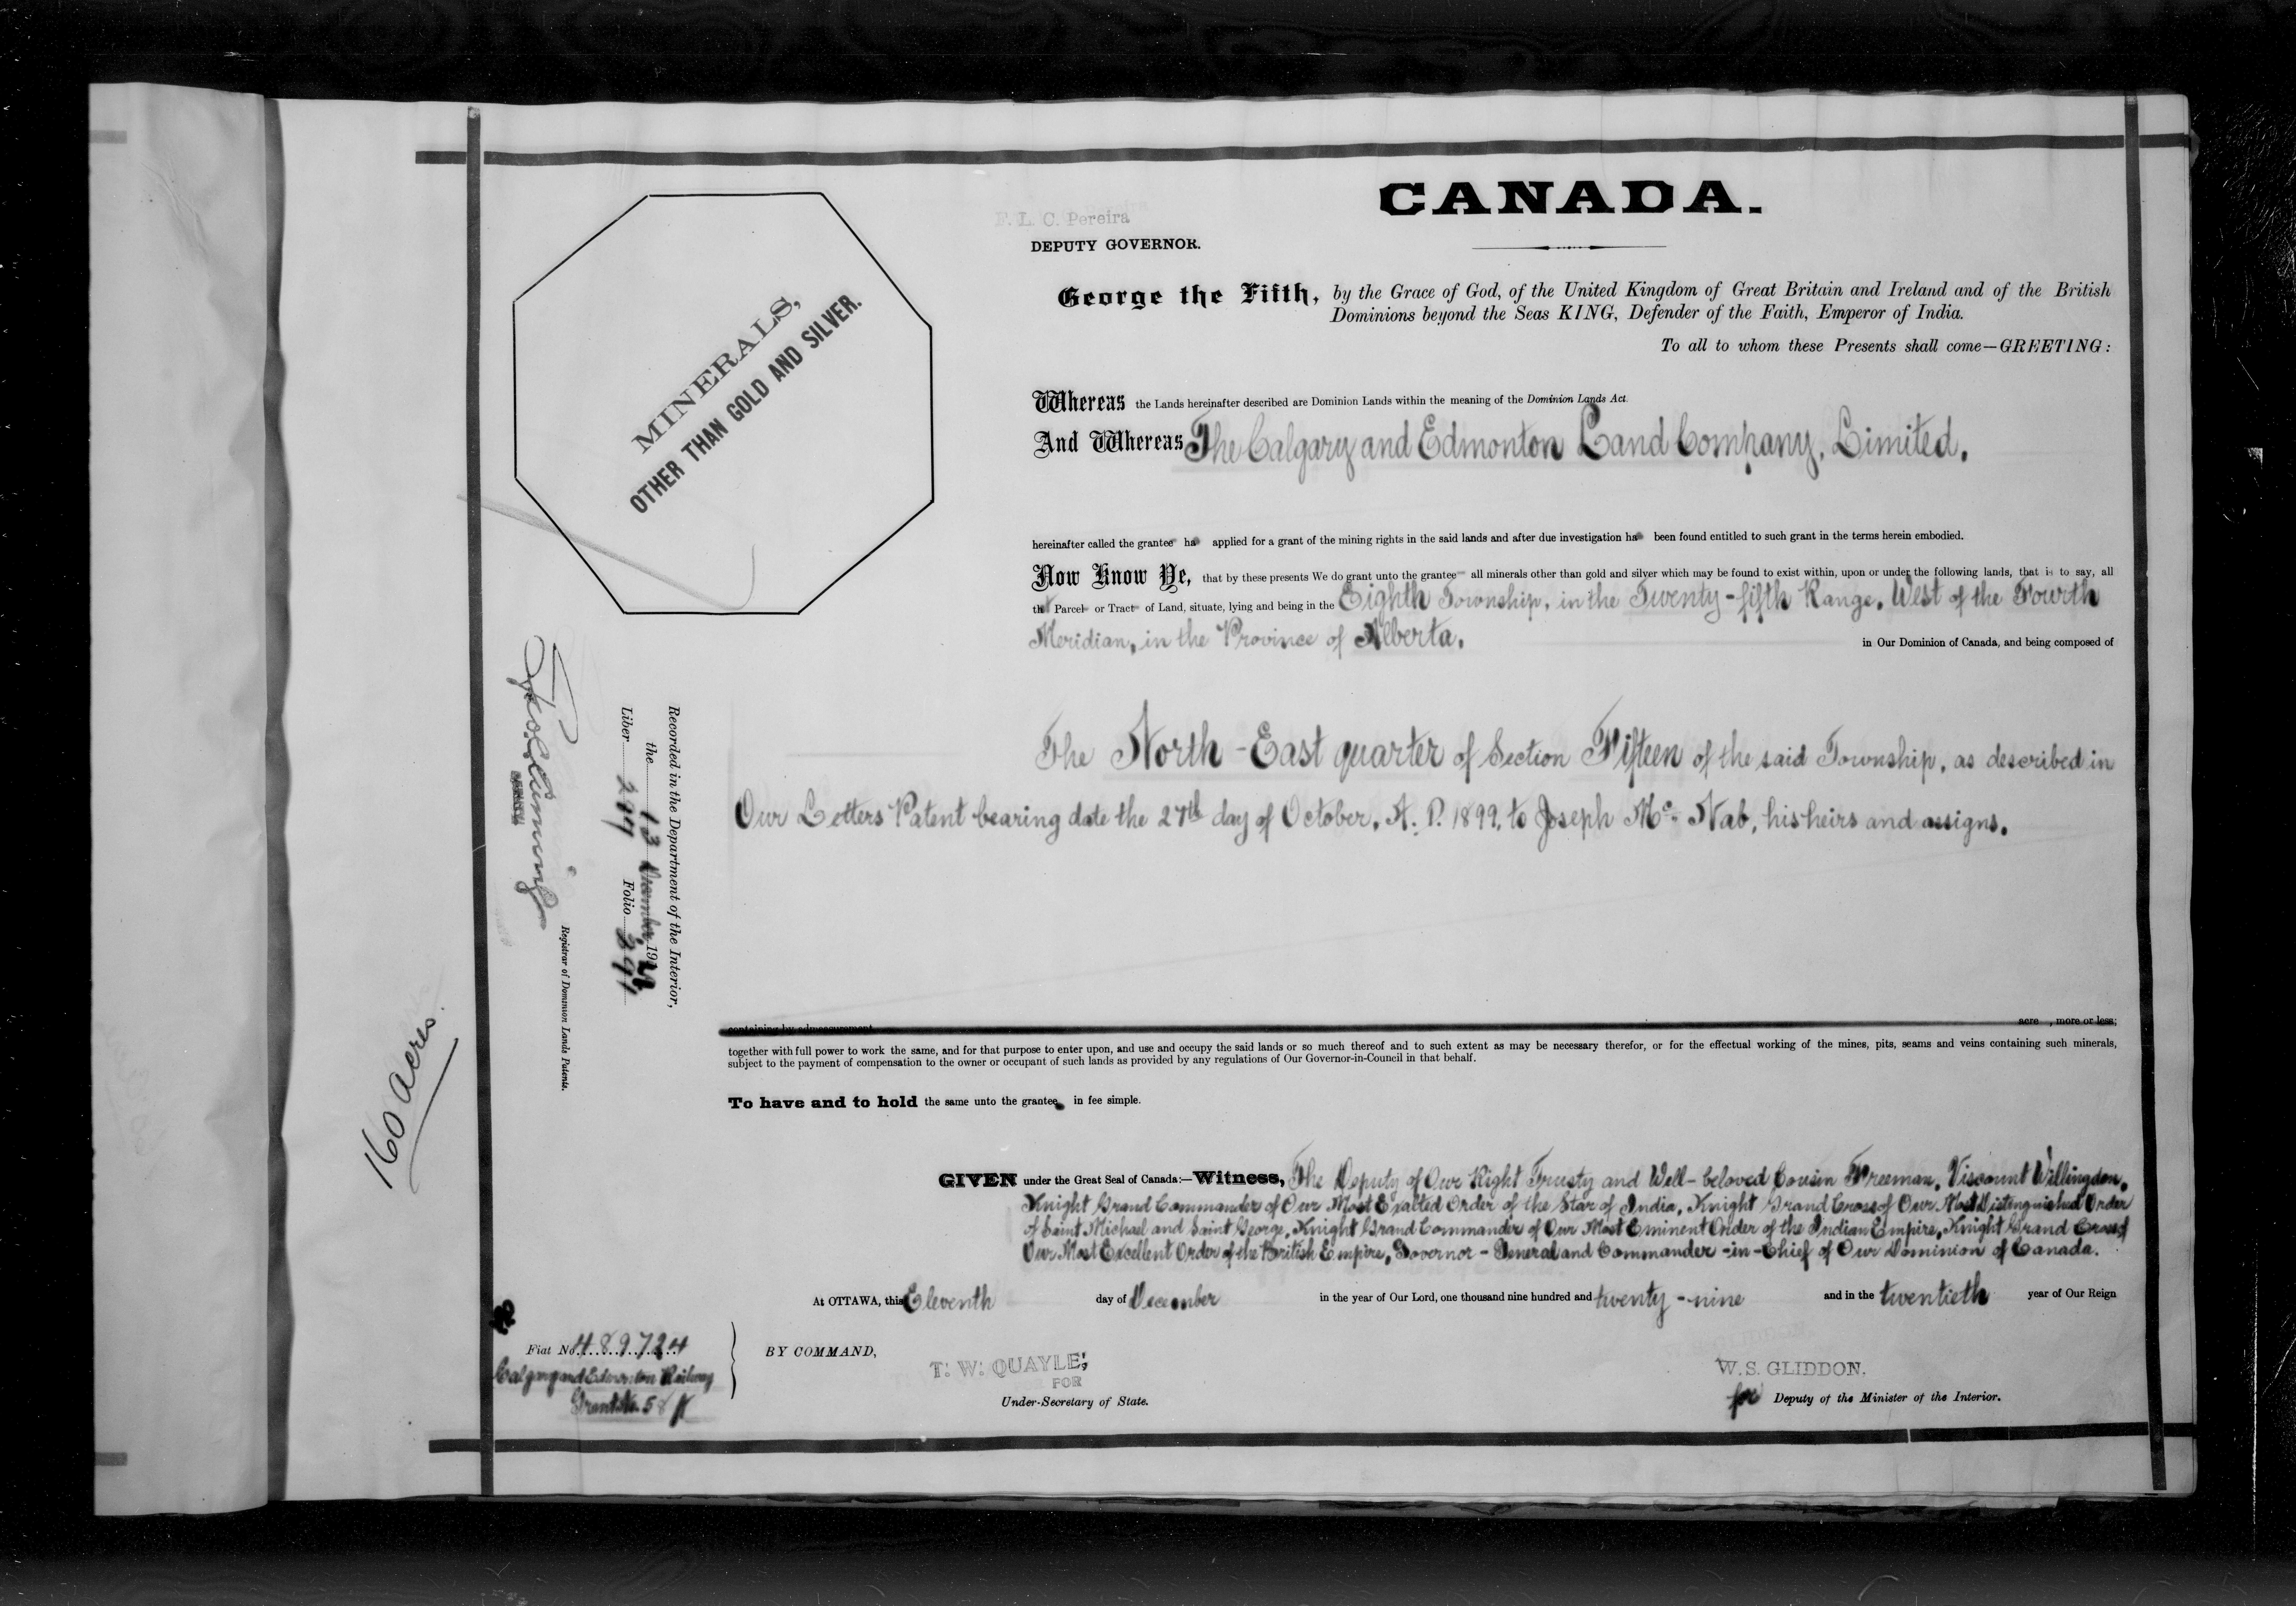 CANADA.
F. L. C. Pereira
DEPUTY GOVERNOR.
MINERALS,
OTHER THAN GOLD AND SILVER.
George the Fifth, by the Grace of God, of the United Kingdom of Great Britain and Ireland and of the British
Dominions beyond the Seas KING, Defender of the Faith, Emperor of India.
To all to whom these Presents shall come—GREETING:
Whereas the Lands hereinafter described are Dominion Lands within the meaning of the Dominion Lands Act.
And Whereas The Calgary and Edmonton Land Company, Limited,
hereinafter called the grantee ha applied for a grant of the mining rights in the said lands and after due investigation ha been found entitled to such grant in the terms herein embodied.
Now Know Ye, that by these presents We do grant unto the grantee all minerals other than gold and silver which may be found to exist within, upon or under the following lands, that is to say, all
that Parcel or Tract of Land, situate, lying and being in the Eighth Township, in the Twenty-fifth Range, West of the Fourth
Meridian, in the Province of Alberta, in Our Dominion of Canada, and being composed of
The North-East quarter of Section Fifteen of the said Township, as described in
Our Letters Patent bearing date the 27th day of October, A. D. 1899, to Joseph Mc Nab, his heirs and assigns.
containing by admeasurement acre , more or less;
together with full power to work the same, and for that purpose to enter upon, and use and occupy the said lands or so much thereof and to such extent as may be necessary therefor, or for the effectual working of the mines, pits, seams and veins containing such minerals,
subject to the payment of compensation to the owner or occupant of such lands as provided by any regulations of Our Governor-in-Council in that behalf.
To have and to hold the same unto the grantee in fee simple.
GIVEN under the Great Seal of Canada:—Witness, The Deputy of Our Right Trusty and Well-beloved Cousin Freeman, Viscount Willingdon,
Knight Grand Commander of Our Most Exalted Order of the Star of India, Knight Grand Cross of Our Most Distinguished Order
of Saint Michael and Saint George, Knight Grand Commander of Our Most Eminent Order of the Indian Empire, Knight Grand Cross of
Our Most Excellent Order of the British Empire, Governor-General and Commander-in-Chief of Our Dominion of Canada.
At OTTAWA, this Eleventh day of December in the year of Our Lord, one thousand nine hundred and twenty-nine and in the twentieth year of Our Reign
BY COMMAND,
T. W. QUAYLE,
FOR
Under-Secretary of State.
W. S. GLIDDON,
for Deputy of the Minister of the Interior.
Fiat No. 48972
Calgary and Edmonton Railway
Grant No. 58
Recorded in the Department of the Interior,
the 13 December, 19
Liber Folio
Registrar of Dominion Lands Patents.
160 acres.